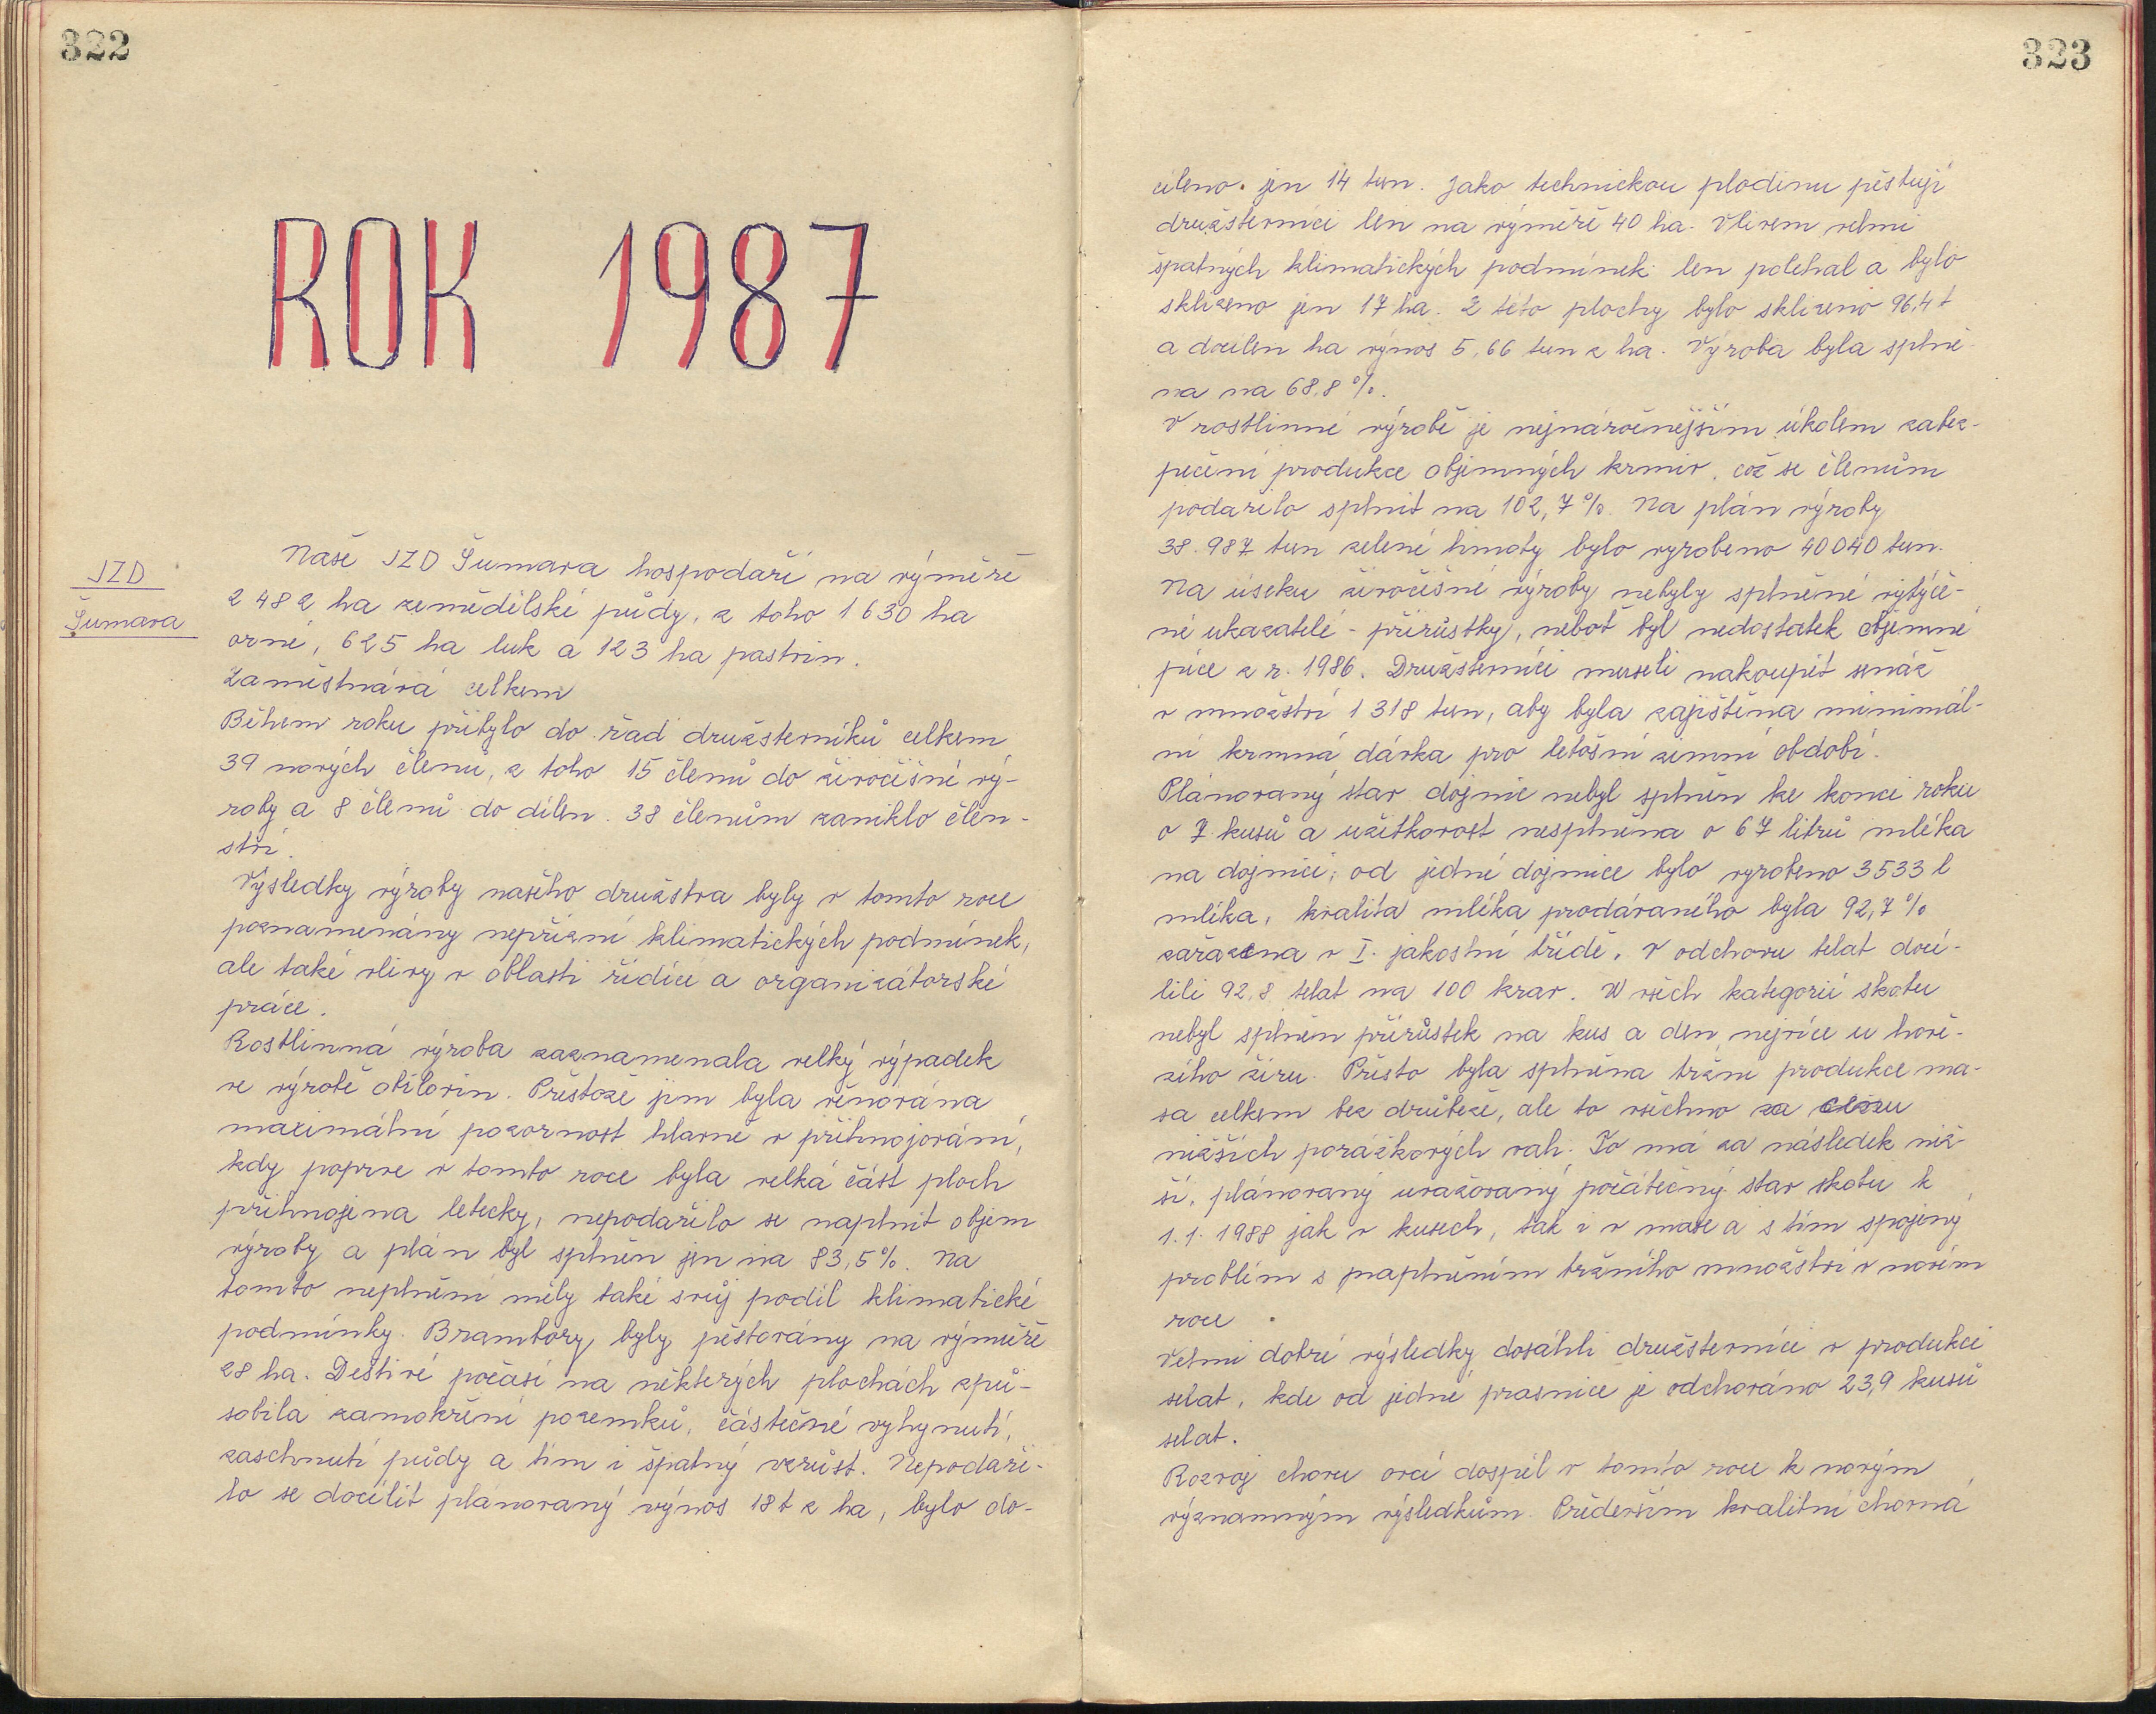 322
ROK 1987
JZD
Šumava
Naše JZD Šumava hospodaří na výměře
2 482 ha zemědělské půdy, z toho 1 630 ha
orné, 625 ha luk a 123 ha pastvin.
Zaměstnává celkem
Během roku přibylo do řad družstevníků celkem
39 nových členu, z toho 15 členů do živočišné vý-
roby a 8 členů do dílen. 38 členům zaniklo člen-
ství.
Výsledky výroby našeho družstva byly v tomto roce
poznamenány nepřízní klimatických podmínek,
ale také vlivy v oblasti řídící a organizátorské
práce.
Rostlinná výroba zaznamenala velký výpadek
ve výrobě obilovin. Přestože jim byla věnována
maximální pozornost hlavně v přihnojování,
kdy poprve v tomto roce byla velká část ploch
přihnojena letecky, nepodařilo se naplnit objem
výroby a plán byl splněn jen na 83,5%. Na
tomto neplnění měly také svůj podíl klimatické
podmínky. Brambory byly pěstovány na výměře
28 ha. Deštivé počasí na některých plochách způ-
sobila zamokření pozemků, částečné vyhynutí,
zaschnutí půdy a tím i špatný vzrůst. Nepodaři-
lo se docílit plánovaný výnos 18t z ha, bylo do-
323
cíleno. jen 14 tun. Jako technickou plodinu pěstují
družstevníci len na výměře 40 ha. Vlivem velmi
špatných klimatických podmínek len polehal a bylo
sklizeno jen 17 ha. Z této plochy bylo sklizeno 96,4 t
a docílen ha výnos 5,66 tun z ha. Výroba byla splně-
na na 68,8 %.
V rostlinné výrobě je nejnáročnějším úkolem zabez-
pečení produkce objemných krmiv, což se členům
podařilo splnit na 102,7%. Na plán výroby
38.987 tun zelené hmoty bylo vyrobeno 40040 tun.
Na úseku živočišné výroby nebyly splněné vytýče-
né ukazatelé - přírůstky, neboť byl nedostatek objemné
píce z r. 1986. Družstevníci museli nakoupit senáž
v množství 1 318 tun, aby byla zajištěna minimál-
ní krmná dávka pro letošní zimní období.
Plánovaný stav dojnic nebyl splněn ke konci roku
o 7 kusů a užitkovost nesplněna o 67 litrů mléka
na dojnici, od jedné dojnice bylo vyrobeno 3533 l
mléka, kvalita mléka prodávaného byla 92,7 %
zařazena v I. jakostní třídě. V odchovu telat docí-
lili 92,8 telat na 100 krav. U všech kategorií skotu
nebyl splněn přírůstek na kus a den, nejvíce u hově-
zího žíru. Přesto byla splněna tržní produkce ma-
sa celkem bez drůbeže, ale to všechno za cenu
nižších porážkových vah. To má za následek niž-
ší, plánovaný uvažovaný počátečný stav skotu k
1.1. 1988 jak v kusech, tak i v mase a s tím spojený
problém s naplněním tržního množství v novém
roce.
Velmi dobré výsledky dosáhli družstevníci v produkci
selat, kde od jedné prasnice je odchováno 23,9 kusů
selat.
Rozvoj chovu ovcí dospěl v tomto roce k novým
významným výsledkům. Především kvalitní chovná